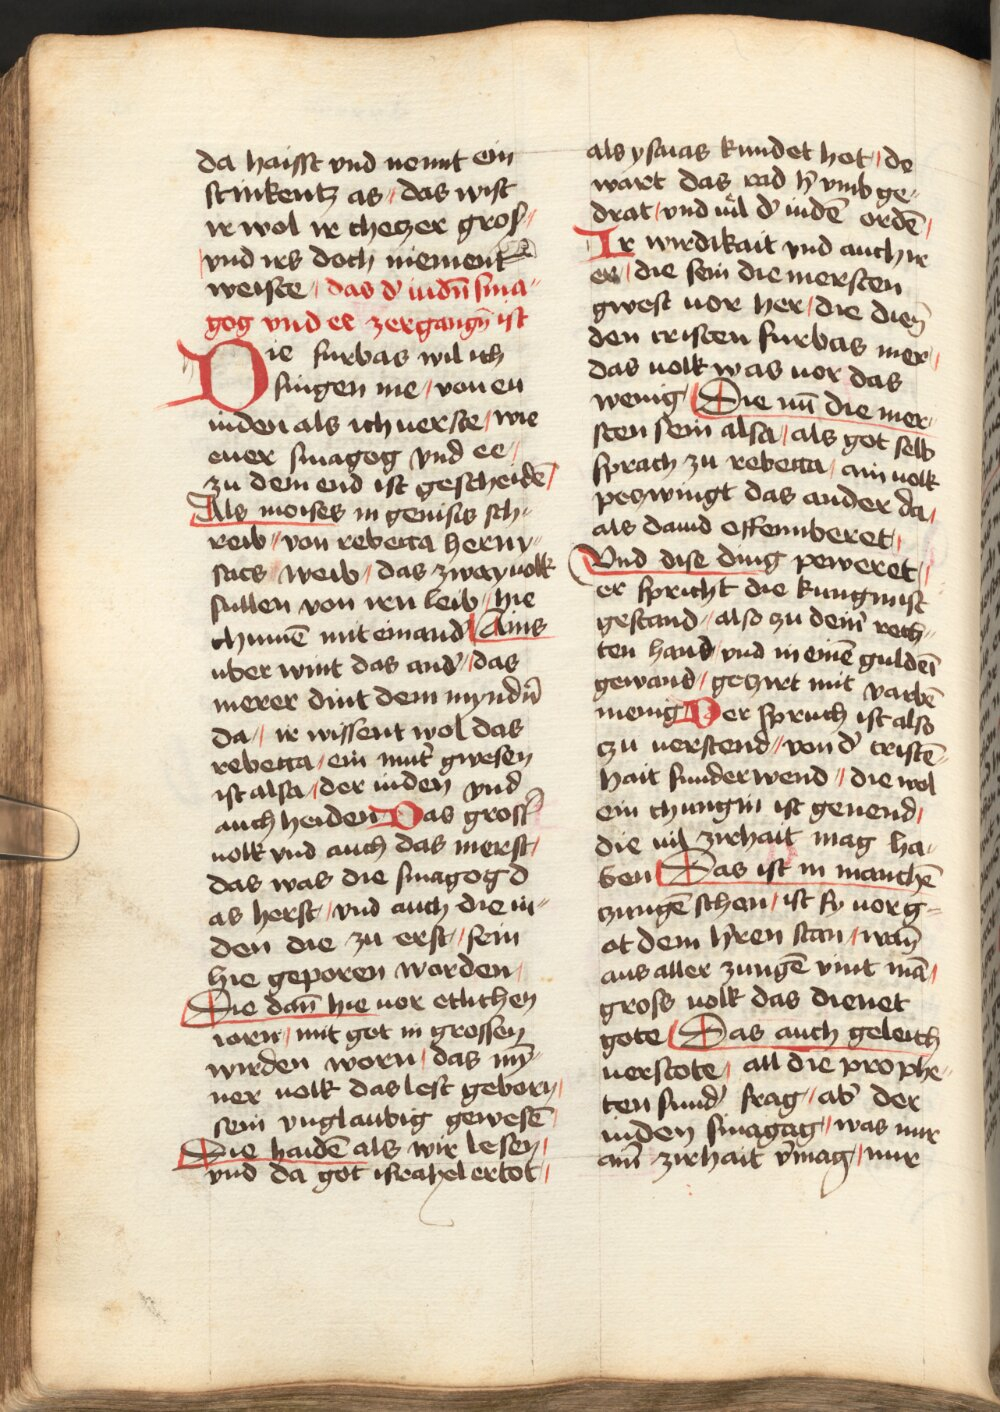 da haisst vnd nennt ein
stinkentz as / das wist
ir wol ir chetzer gros /
vnd irs doch niement
weiste / das d' iudn̄ sina
gog vnd ee zergangn̄ ist
Die furbas wil ich
singen me / von eu
iuden als ich verste / wie
euer sinagog vnd ee /
zu dem end ist gescheidē /
Als moises in genisis sch-
reib / von rebecca hern y-
sacs weib / das zway volk
sullen von irn leib / hie
chumē mit einand' / Ains
uber wint das and' / das
merer dint dem myndn̄
da / ir wissent wol das
rebecca / ein mut' gwesen
ist alsa / der iuden vnd
auch heiden Das gross'
volk vnd auch das merst /
das was die sinagog d
as herst / vnd auch die iu-
den die zu erst / sein
hie geporen worden /
Die dan̄ hie vor etlichen
iorn / mit got in grossen
wirden worn / das my-
ner volk das lest geborn /
sein vnglaubig gewesē
Die haidē als wir lesen /
vnd da got israhel ertot /
als ysaias kundet hot / de
wart das rad h' vmb ge-
drat / vnd vil d' iudē ordē /
Ir wirdikait vnd auch ir
er / die sein die mersten
gwest vor her / die dien̄
den cristen furbas mer /
das volk was vor das
wenig / Die nū die mer-
sten sein alsa / als got selb
sprach zu rebecca / ain volk
peswingt das ander da /
als dauid effennberet /
Vnd dise ding peweret /
er spricht die kungin ist
gestand / also zu deim rech-
ten hand / vnd in einē guldeī
gewand / gezirt mit varbē
menig Der spruch ist also
zu verstend / von d' cristē-
hait sunder wend / die wol
ein chungin ist genend /
die vil zirhait mag ha-
ben / Das ist in manchē
zungē schen / ist sy vor g-
ot dem h'ren stan / wan̄
aus aller zungē vint mā /
gross volk das dienet
gote / Das auch geleich
verstote / all die prophe-
ten sund' frag / ab' der
iuden sinagag / was nur
ain̄ zirhait v'mag / nur